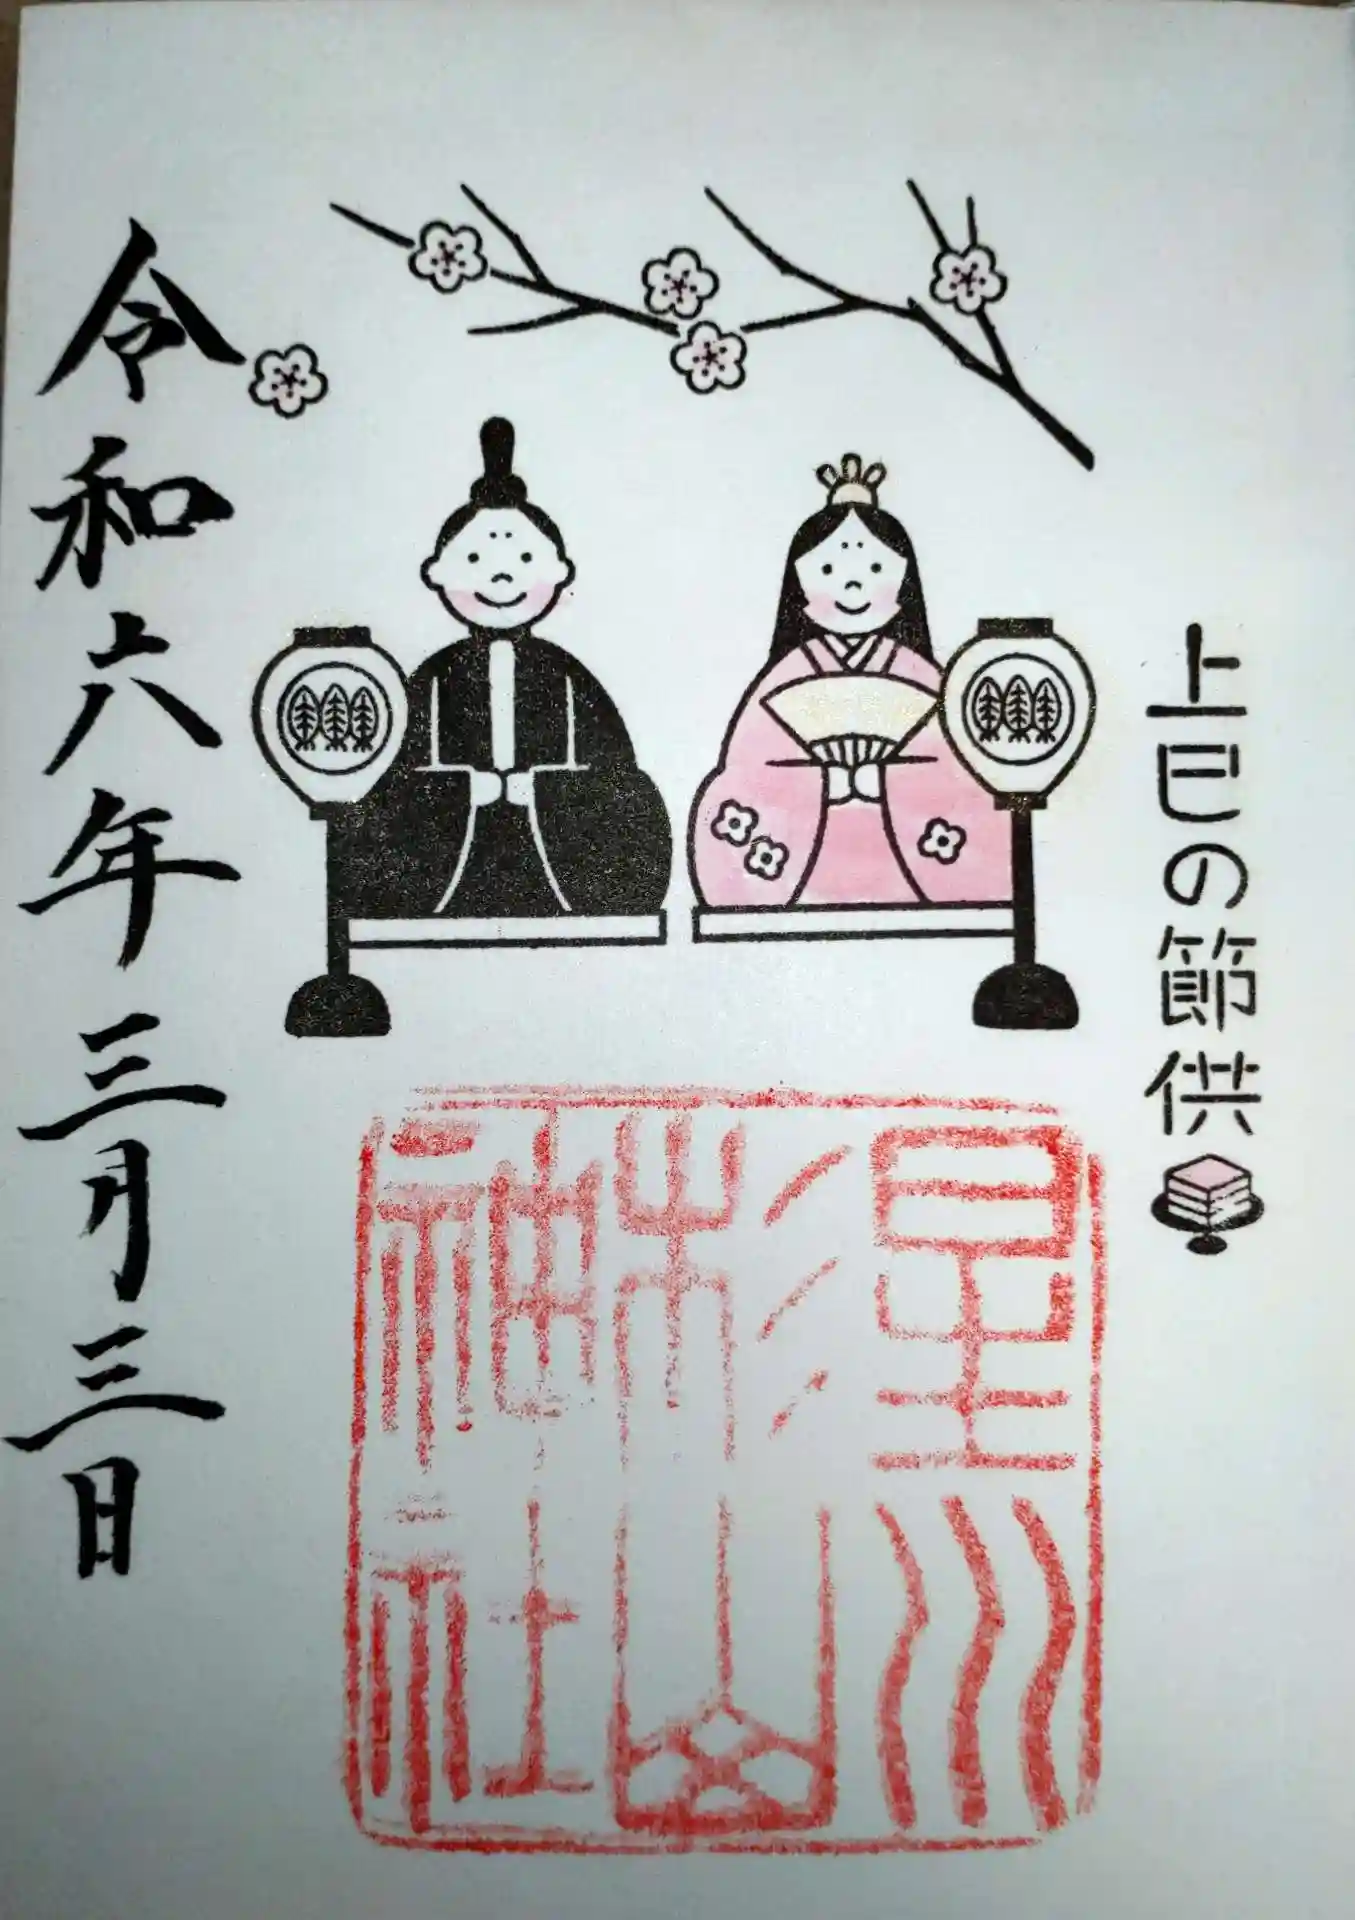 上巳の節供
星川
杉山
神社
令和六年三月三日